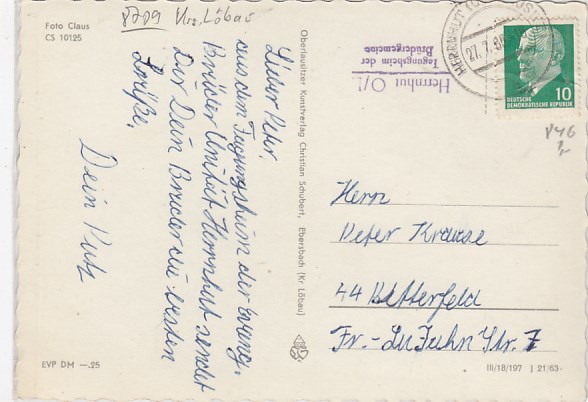 8709 Krs. Löbau
Foto Claus
CS 10125
Lieber Peter.
aus dem Tagungsheim der evang.
Brüder Unität Herrnhut sendet
Dir Dein Bruder die besten
Grüße.
Dein
EVP DM —.25
Oberlausitzer Kunstverlag Christian Schubert, Ebersbach (Kr Löbau)
Herrnhut O/L
Tagungsheim der
Brüdergemeine
HERRNHUT (OBERLAUS)
27.7.
10
DEUTSCHE
DEMOKRATISCHE REPUBLIK
Herrn
Peter Krause
44 Bitterfeld
Fr.-L. Jahn Str. 7
III/18/197 J 21/63